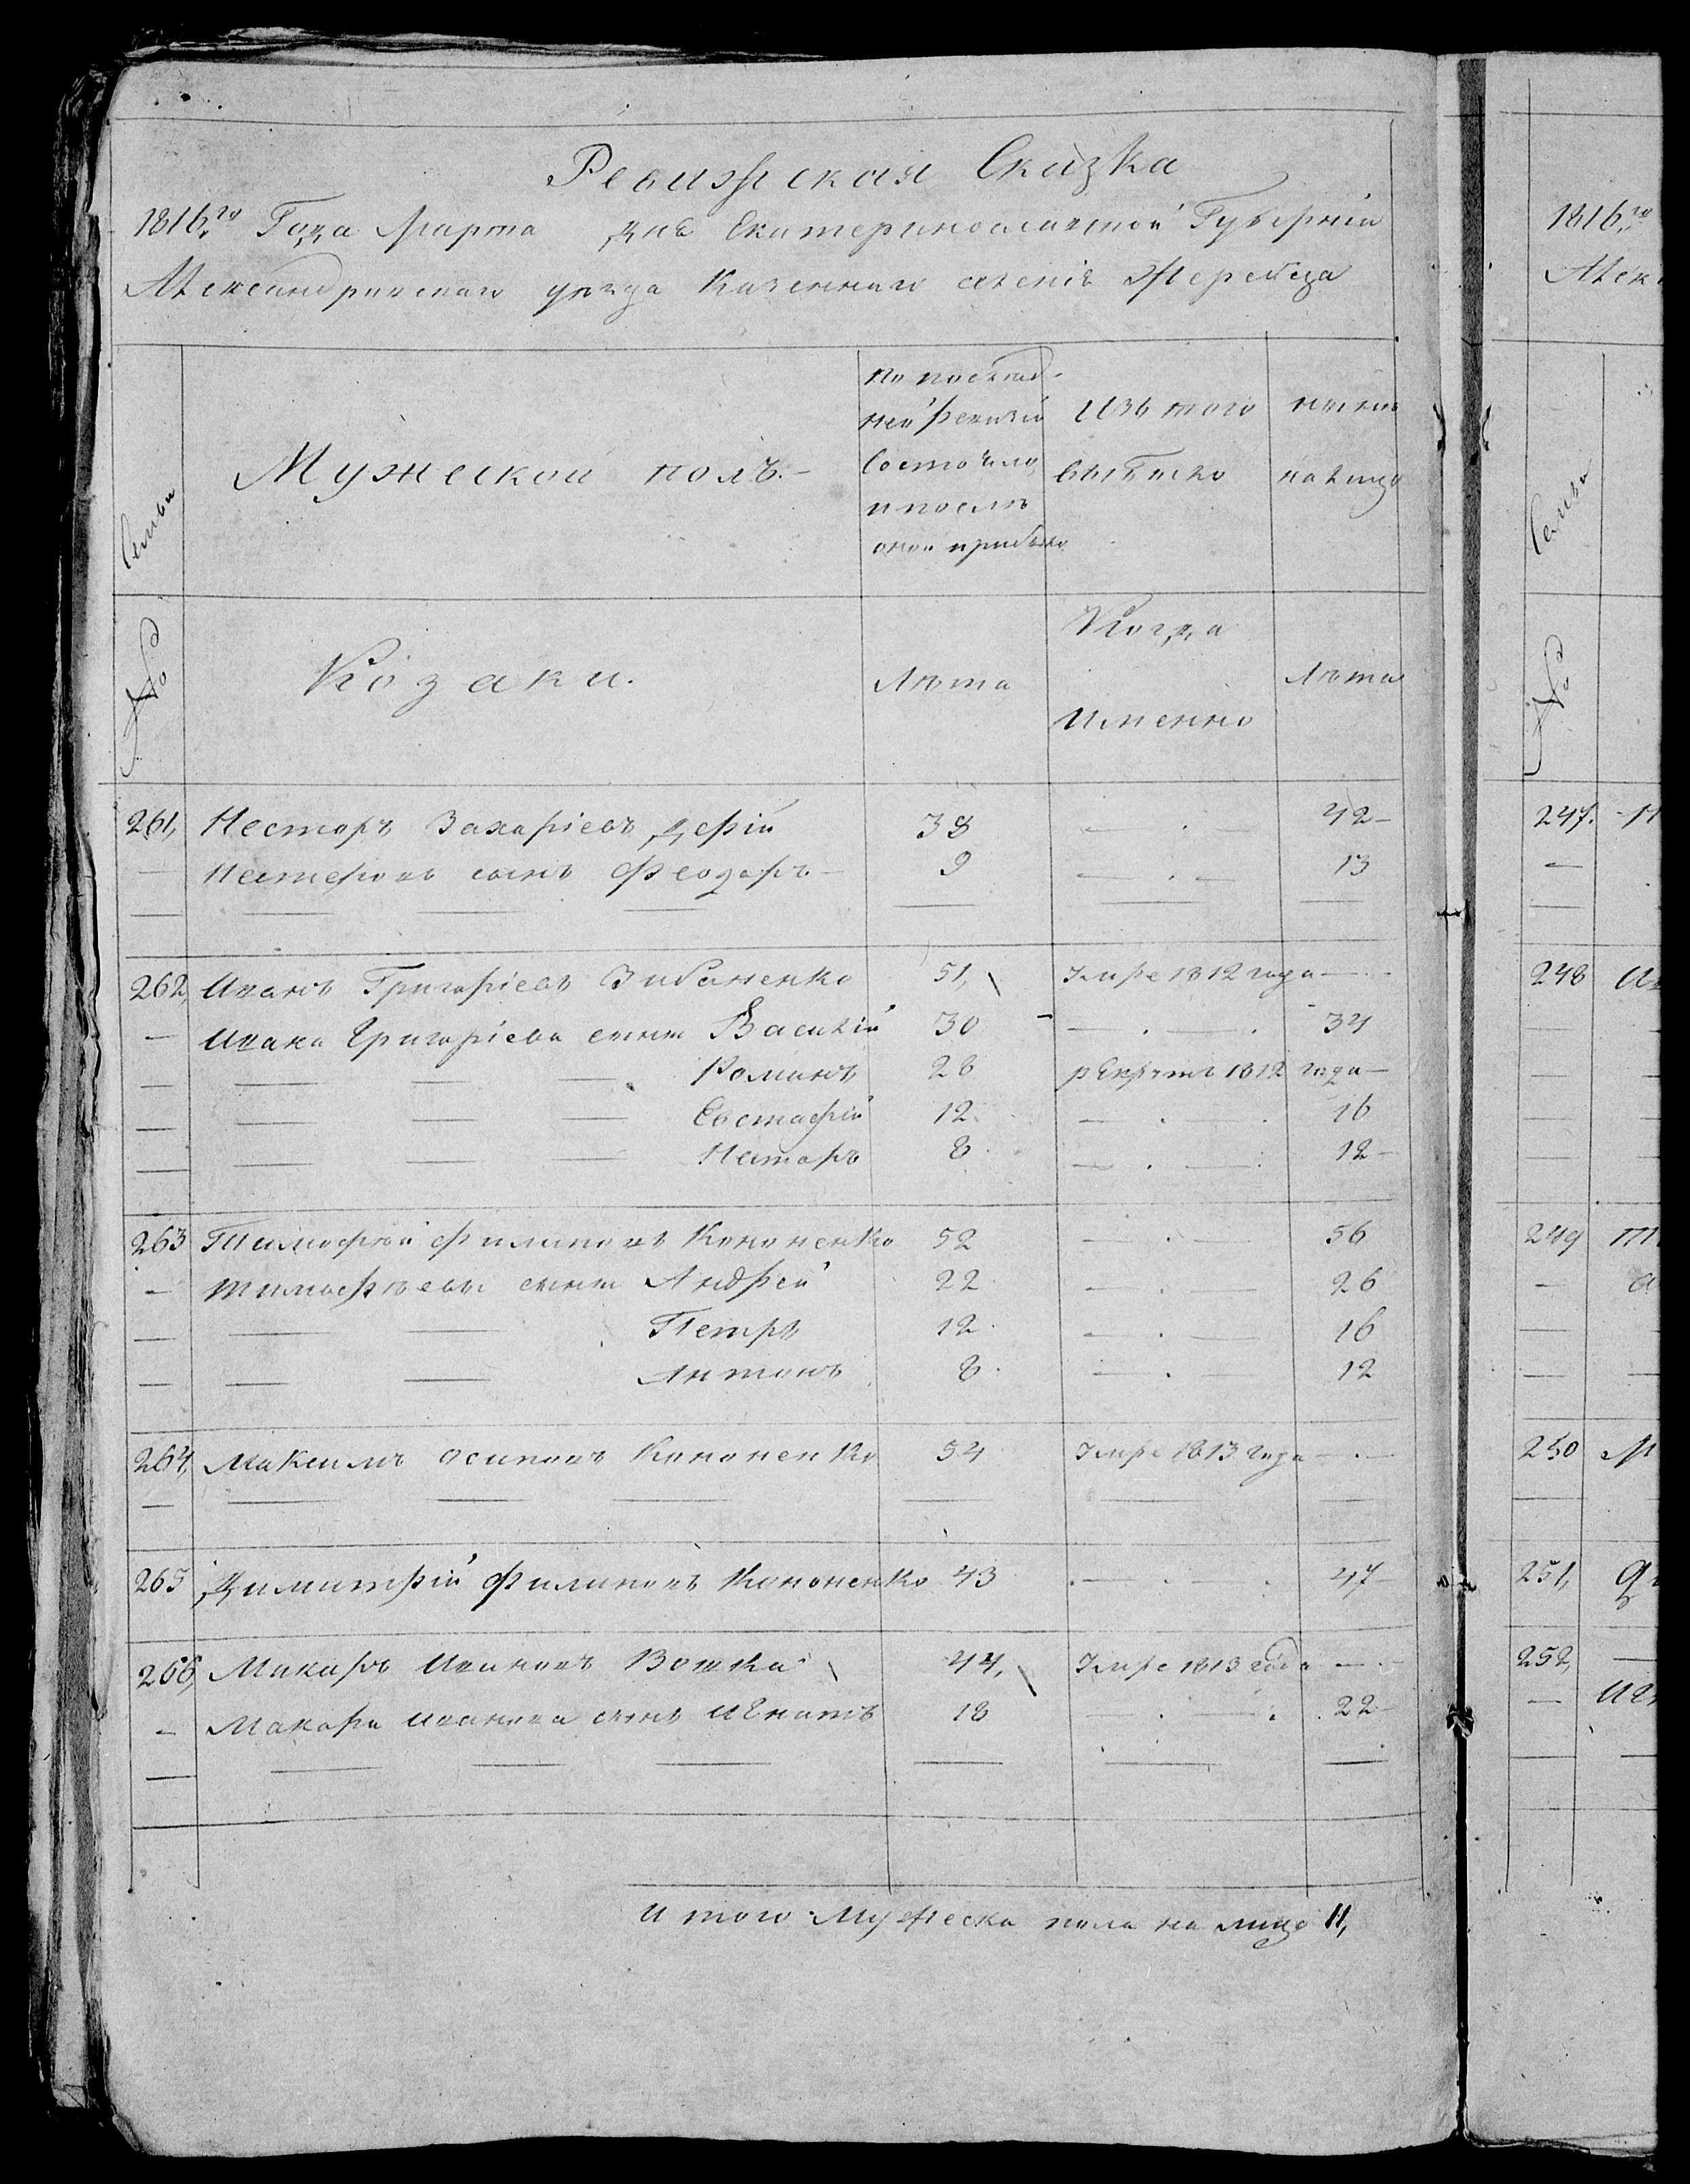 Ревижская Сказка
1816го Года Марта дня Екатеринославской Губерніи
Александрийскаго уезда Казеннаго селенія Жеребца
Семьи
Мужеской полъ.
по послѣд-
ней ревизіи
состояло
и послѣ
оной прибыло
Изъ того
выбыло
ныне
на лицо
№
Козаки.
Лѣта
Когда
Именно
Лѣта
261, Несторъ Захаріевъ 38 — . — 42 —
— Нестеровъ сынъ Феодоръ — 9 — . — 13
262, Иванъ Григоріевъ Зибаненко 51, Умре 1812 года — . —
— Ивана Григоріева сыны Василій 30 — . — . 34
— — — — Романъ 28 рекрутъ 1812 года —
— — — — Евстафій 12 — . — . 16
— — — — Несторъ 8 — . — . 12 —
263 Тимофей Филиповъ Кононенко 52 — . — 56
— Тимофѣевы сыны Андрей 22 — . — 26
— — — Петръ 12 — . — 16
— — — Антонъ 8 — . — 12
264, Максимъ Осиповъ Кононенко 54 Умре 1813 года — . —
265 Димитрій Филиповъ Кононенко 43 . — . — . 47 —
266, Макаръ Ивановъ Вошка 44, Умре 1813 года — . —
— Макара Иванова сынъ Игнатъ 18 — . — : 22 —
Итого Мужеска пола на лицо 11,
1816го
Алек
Семьи
№
247.
248
249
250
251,
252,